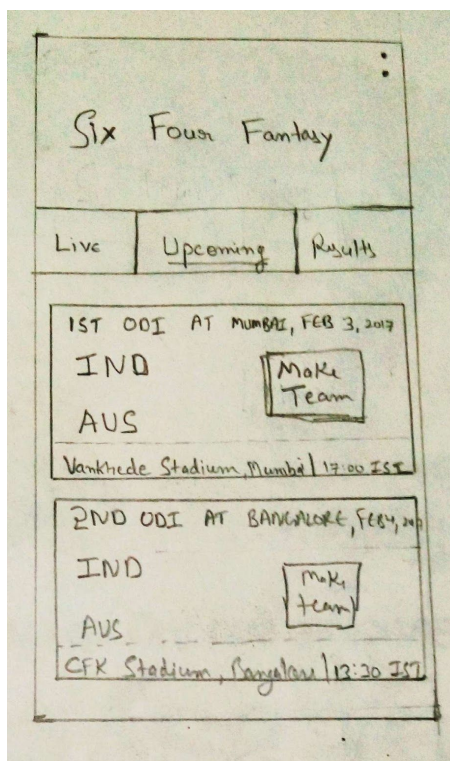 Six Four Fantasy
Live Upcoming Results
1ST ODI AT MUMBAI, FEB 3, 2017
IND
Make
Team
AUS
Vankhede Stadium, Mumbai | 17:00 IST
2ND ODI AT BANGALORE, FEB 4, 2017
IND
Make
team
AUS
CFK Stadium, Bangalore | 13:30 IST